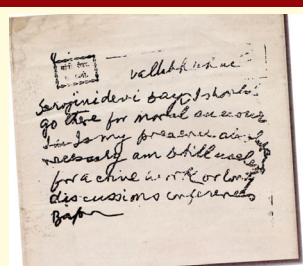 Sarojinidevi says I should
go there for moral
Is my presence
necessary am still useless
for active work or long
discussions conferences
Bapu